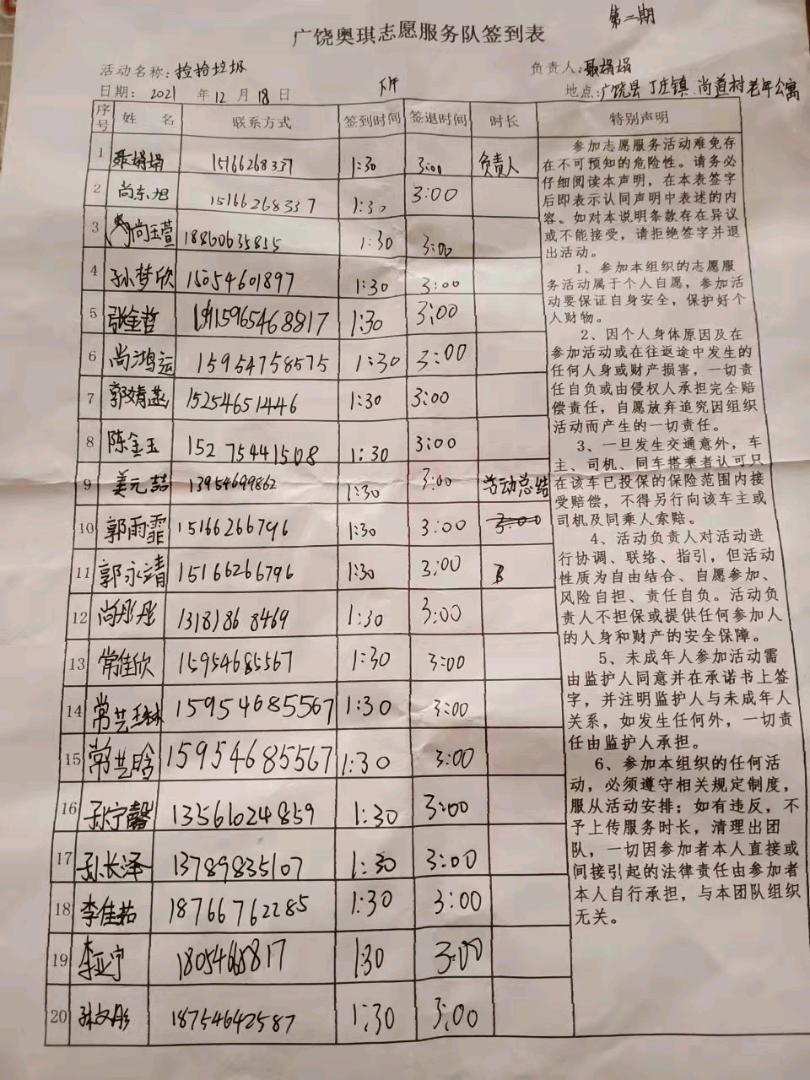 第二期
广饶奥琪志愿服务队签到表
活动名称：捡拾垃圾 负责人：聂娟娟
日期：2021年12月18日 下午 地点：广饶县丁庄镇尚道村老年公寓
序号 姓名 联系方式 签到时间 签退时间 时长 特别声明
1 聂娟娟 15166268337 1:30 3:00 负责人
2 尚东旭 15166268337 1:30 3:00
3 尚玉萱 18860635815 1:30 3:00
4 孙梦欣 15054601897 1:30 3:00
5 张金哲 15965468817 1:30 3:00
6 尚鸿运 15954758575 1:30 3:00
7 郭婧燕 15254651446 1:30 3:00
8 陈金玉 15275441508 1:30 3:00
9 姜元喆 13954699862 1:30 3:00 活动总结
10 郭雨霏 15166266796 1:30 3:00 3:00
11 郭永靖 15166266796 1:30 3:00
12 尚彤彤 13181868469 1:30 3:00
13 常佳欣 15954685567 1:30 3:00
14 常芸 15954685567 1:30 3:00
15 常芸晗 15954685567 1:30 3:00
16 孙宁馨 13561024859 1:30 3:00
17 孙长泽 13789835107 1:30 3:00
18 李佳茹 18766762285 1:30 3:00
19 李亚宁 1:30 3:00
20 孙文彤 18754642587 1:30 3:00
参加志愿服务活动难免存
在不可预知的危险性。请务必
仔细阅读本声明，在本表签字
后即表示认同声明中表述的内
容。如对本说明条款存在异议
或不能接受，请拒绝签字并退
出活动。
1、参加本组织的志愿服
务活动属于个人自愿，参加活
动要保证自身安全，保护好个
人财物。
2、因个人身体原因及在
参加活动或在往返途中发生的
任何人身或财产损害，一切责
任自负或由侵权人承担完全赔
偿责任，自愿放弃追究因组织
活动而产生的一切责任。
3、一旦发生交通意外，车
主、司机、同车搭乘者认可只
在该车已投保的保险范围内接
受赔偿，不得另行向该车主或
司机及同乘人索赔。
4、活动负责人对活动进
行协调、联络、指引，但活动
性质为自由结合、自愿参加、
风险自担、责任自负。活动负
责人不担保或提供任何参加人
的人身和财产的安全保障。
5、未成年人参加活动需
由监护人同意并在承诺书上签
字，并注明监护人与未成年人
关系，如发生任何外，一切责
任由监护人承担。
6、参加本组织的任何活
动，必须遵守相关规定制度，
服从活动安排；如有违反，不
予上传服务时长，清理出团
队，一切因参加者本人直接或
间接引起的法律责任由参加者
本人自行承担，与本团队组织
无关。